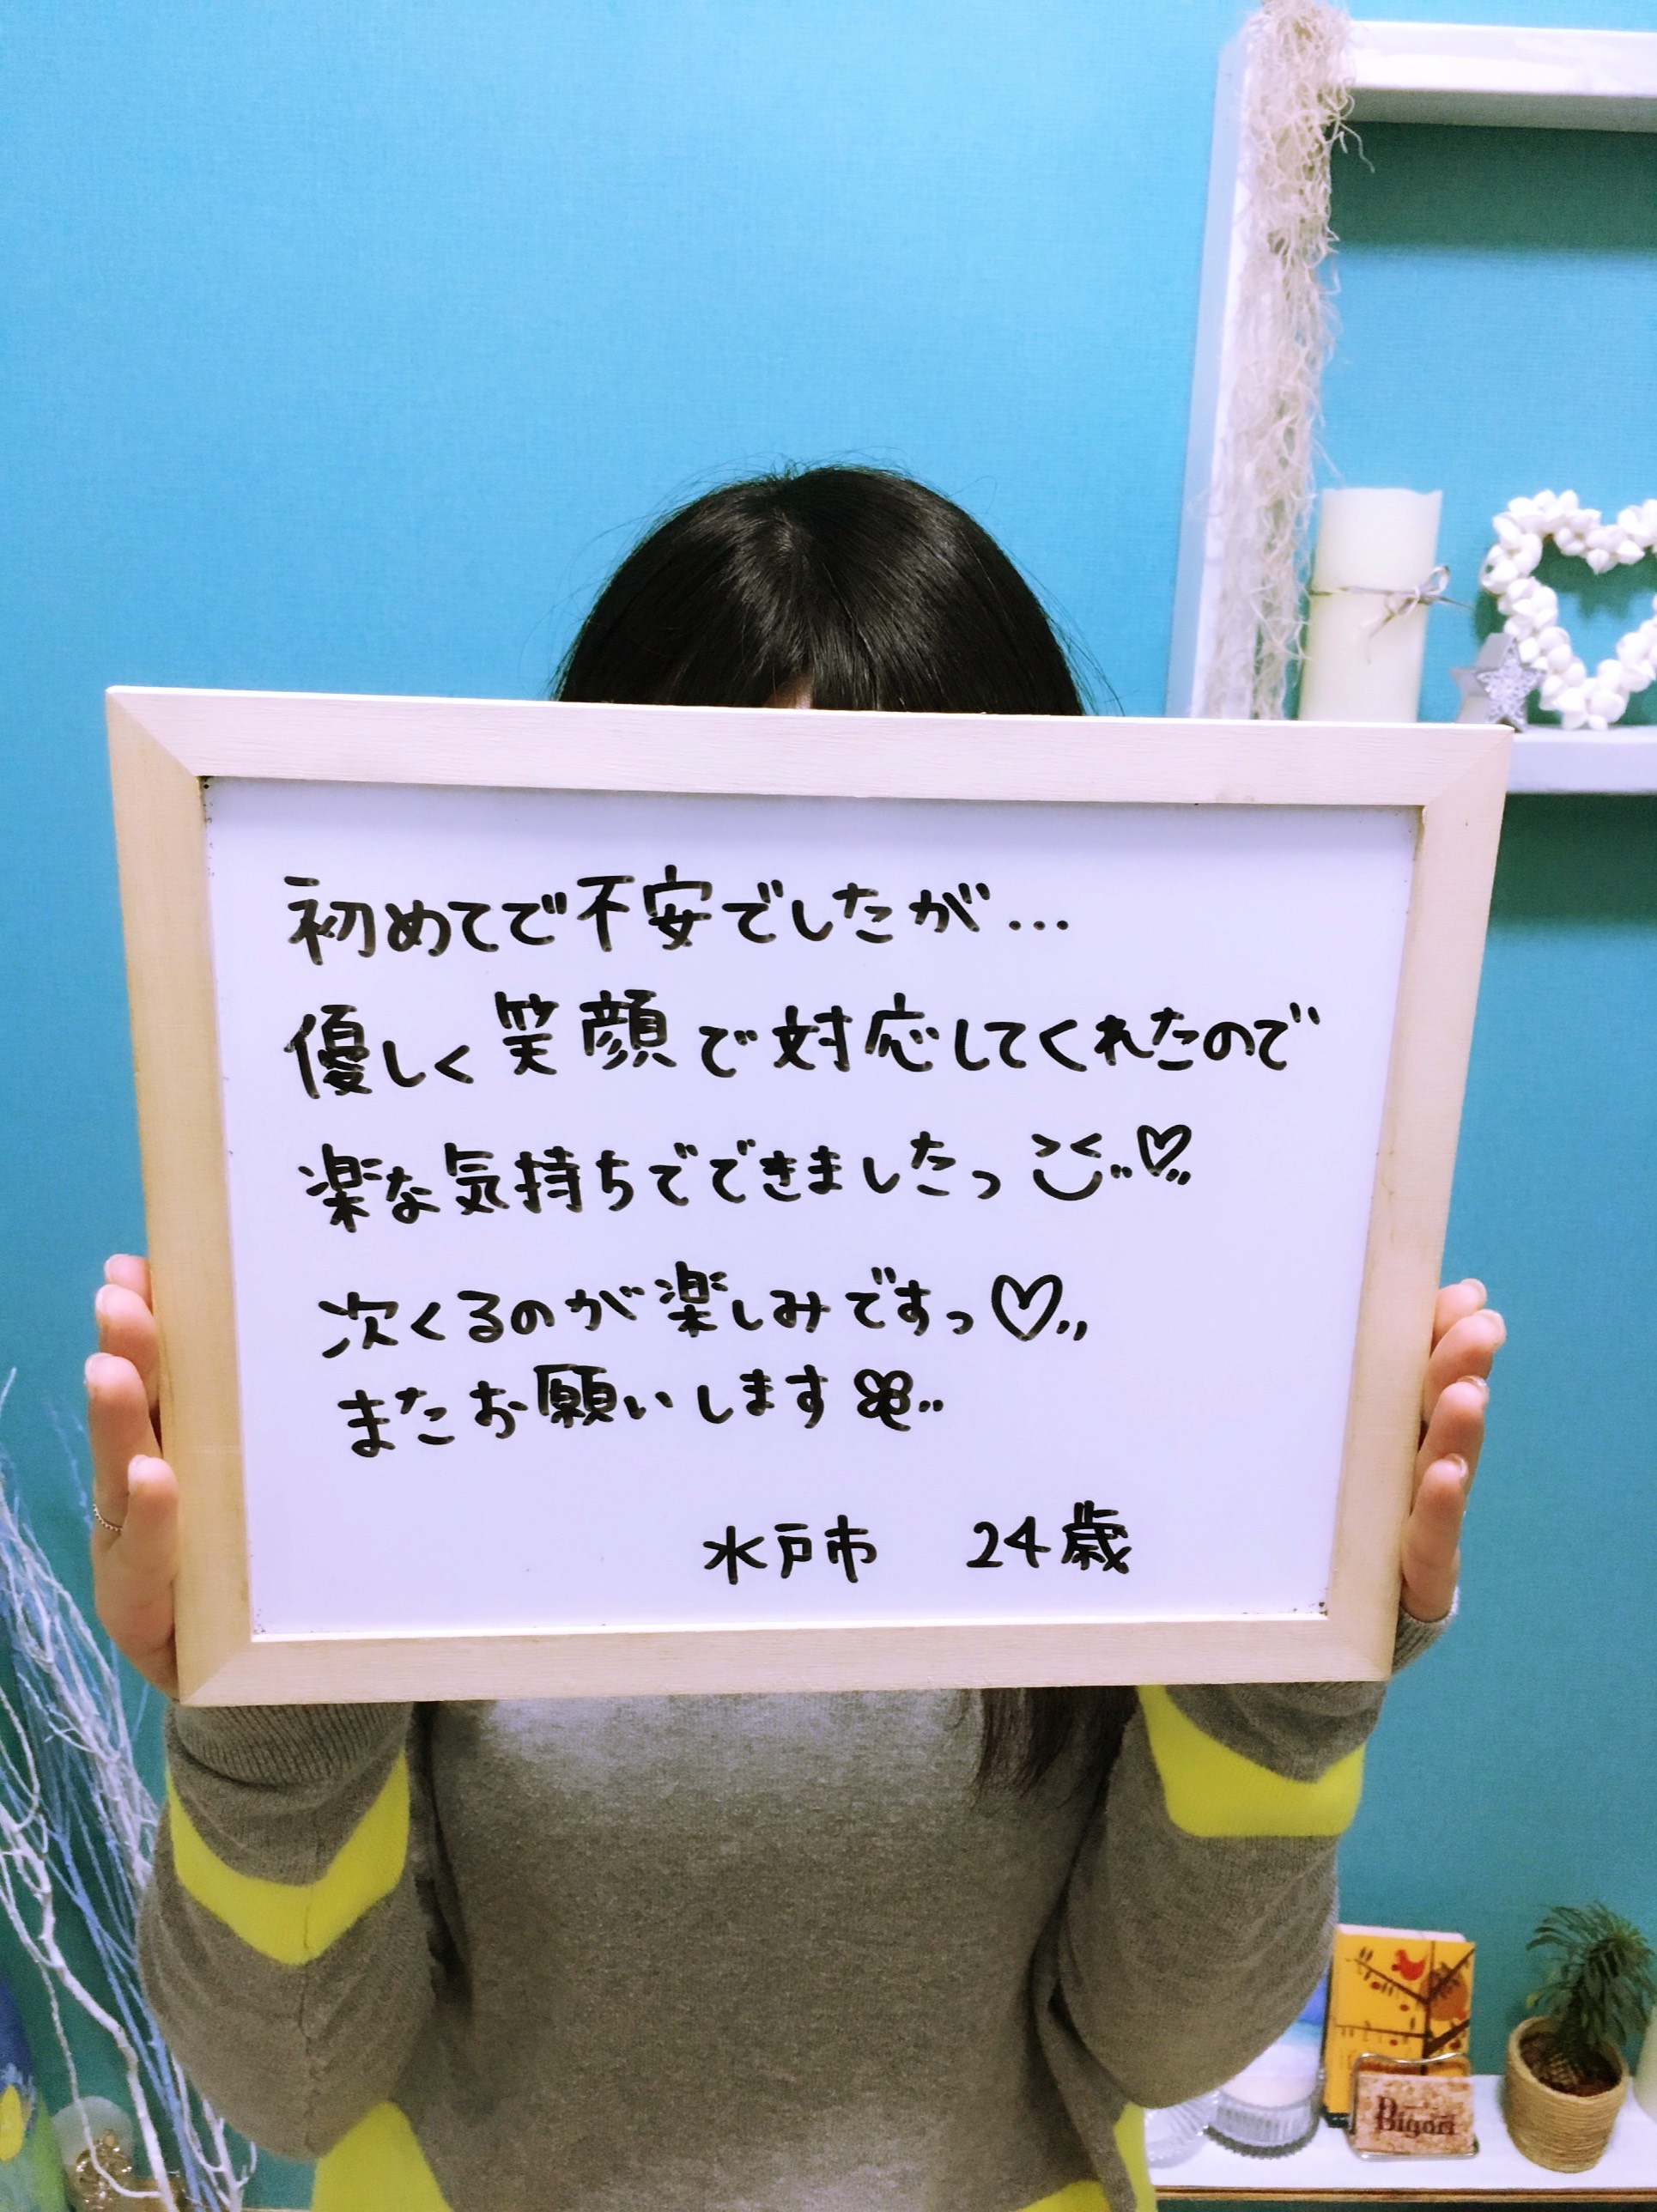 初めてで不安でしたが…
優しく笑顔で対応してくれたので
楽な気持ちでできましたっ
次くるのが楽しみですっ♡
またお願いします
水戸市 24歳
Bigari